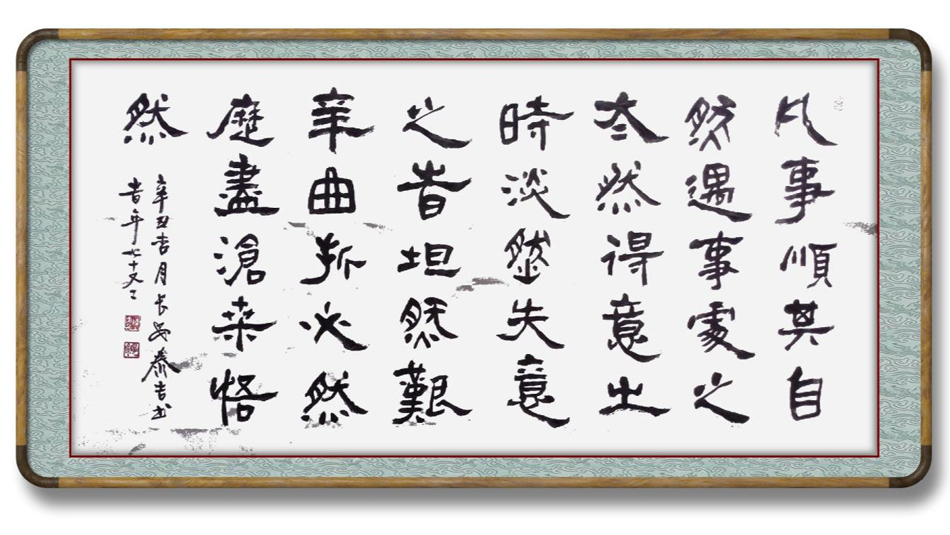 凡事順其自
然遇事處之
夳然得意㞢
時淡然失意
之旹坦然艱
辛曲折必然
歷盡滄桒悟
然
辛丑吉月长安泰吉书
旹年七十又二